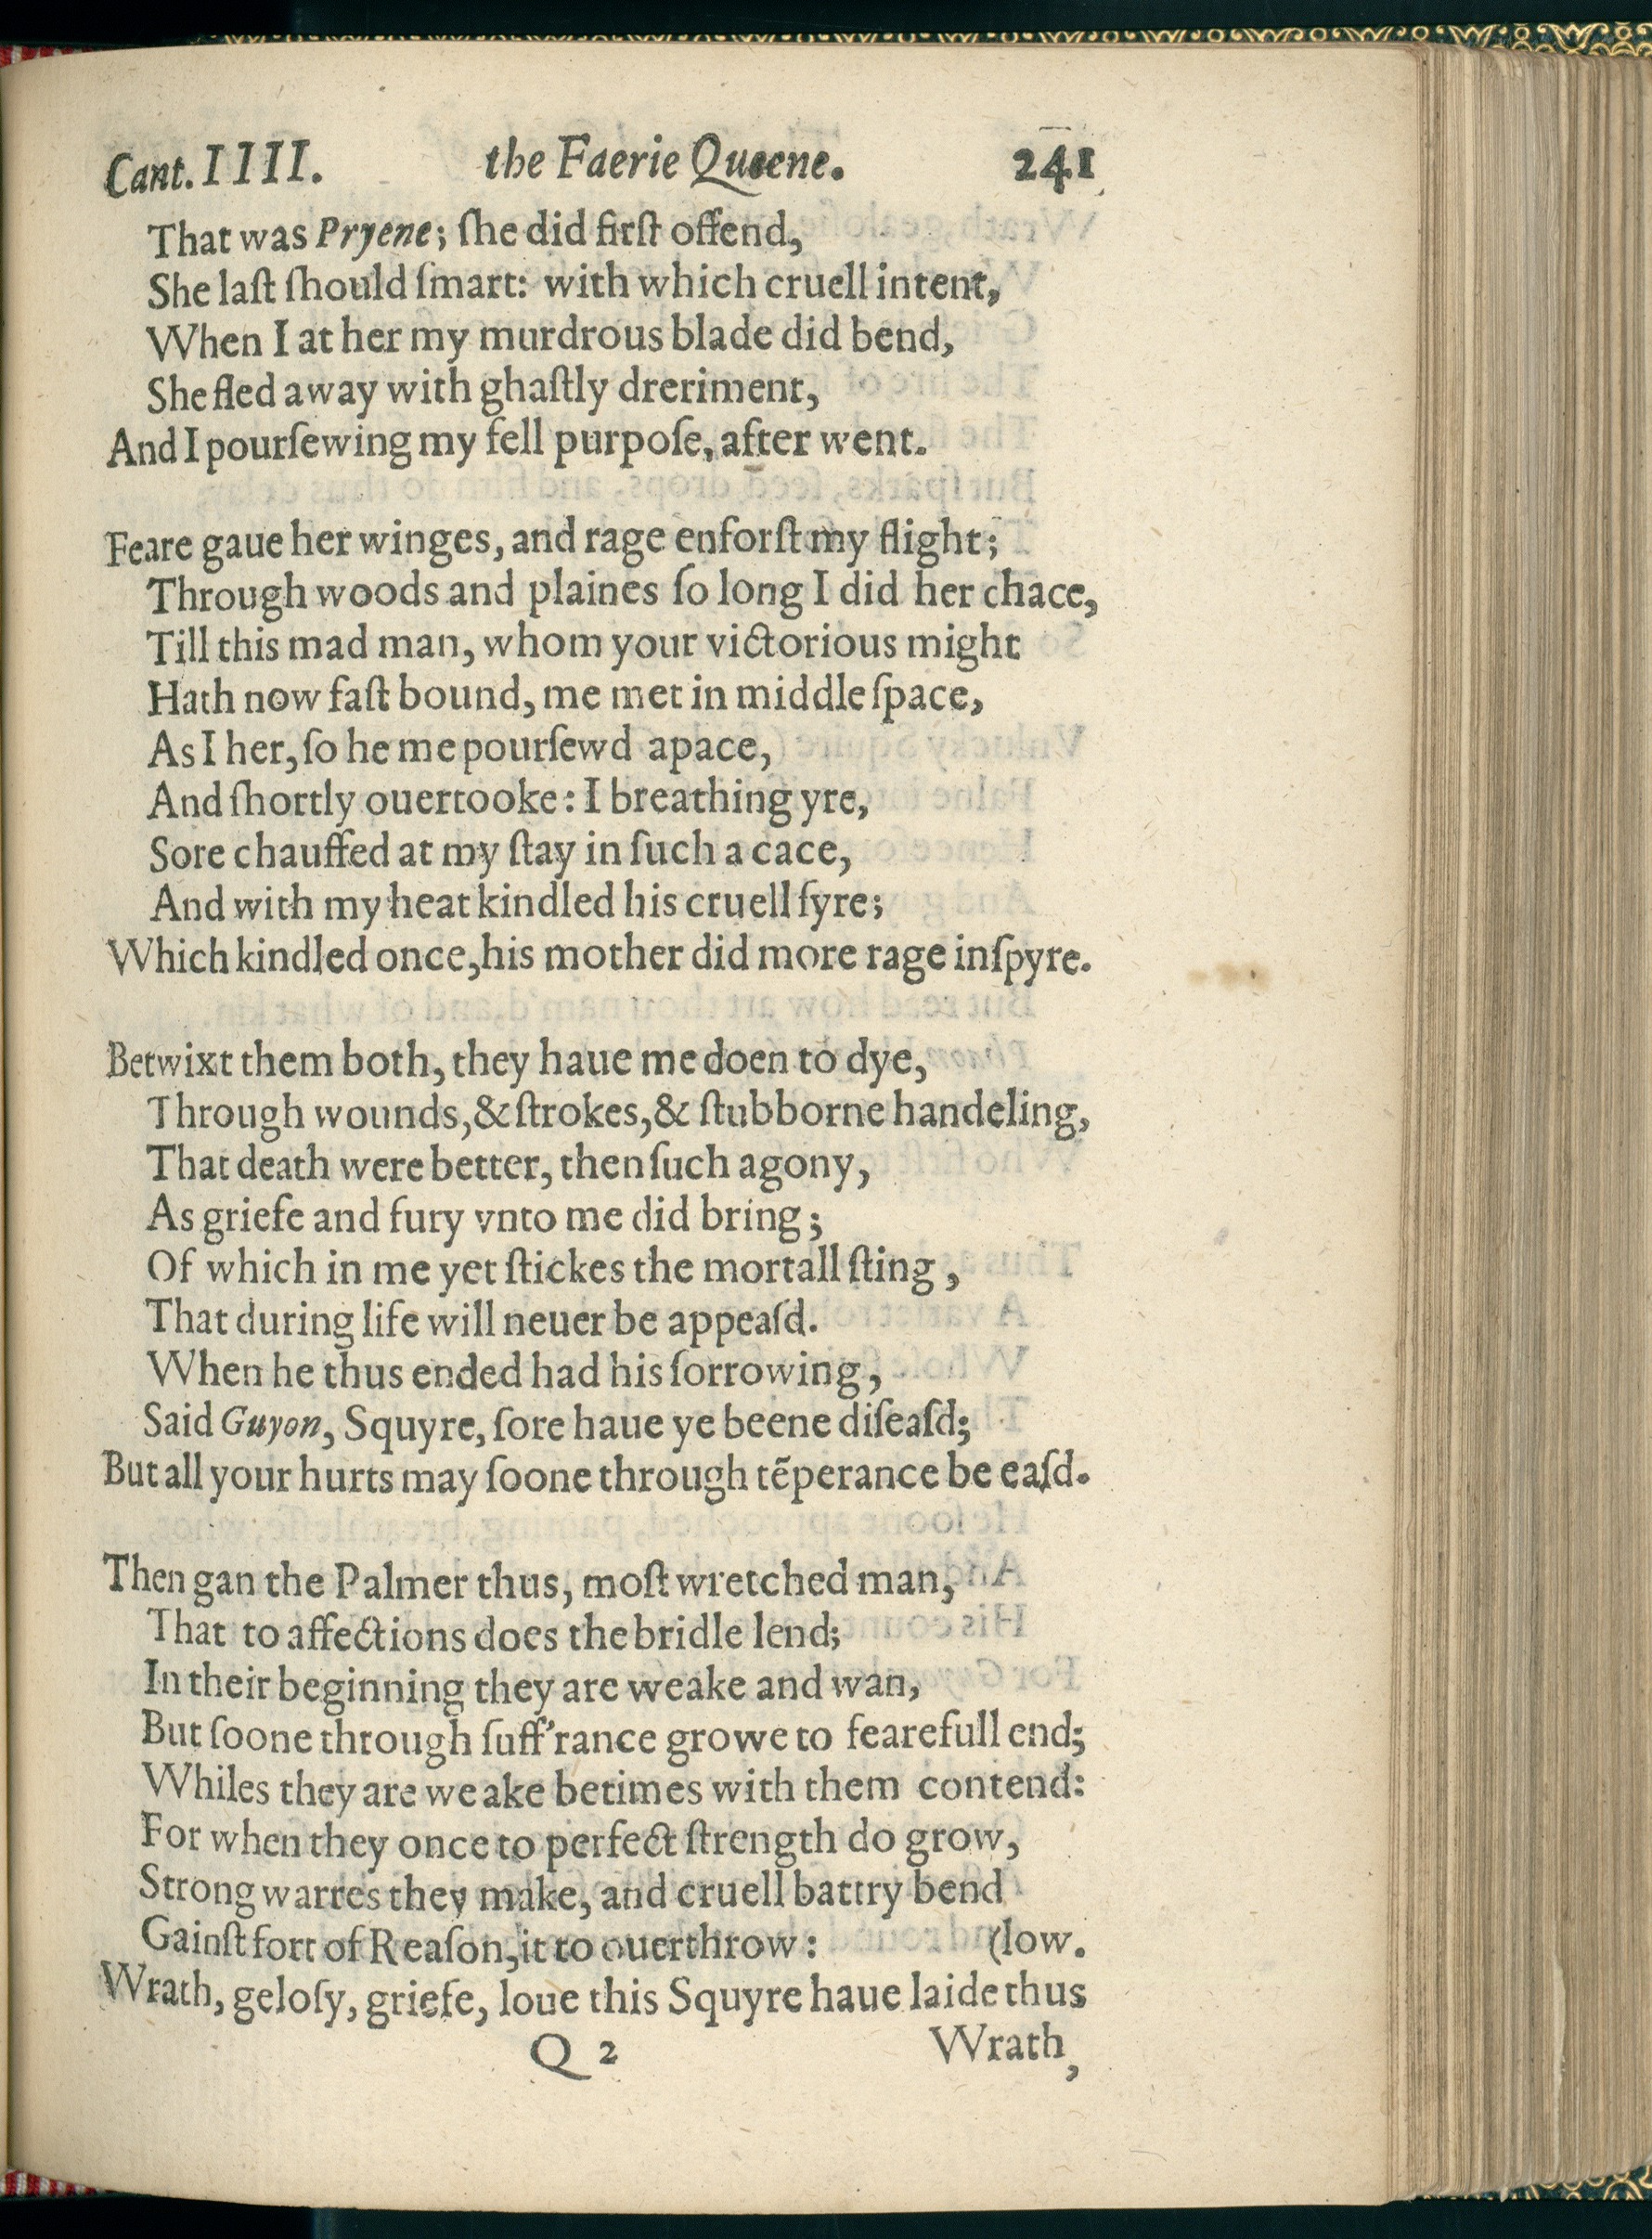 Cant. IIII. the Faerie Queene. 241
That was Pryene; ſhe did firſt offend,
She laſt ſhould ſmart: with which cruell intent,
When I at her my murdrous blade did bend,
She fled away with ghaſtly dreriment,
And I pourſewing my fell purpoſe, after went.
Feare gaue her winges, and rage enforſt my flight;
Through woods and plaines ſo long I did her chace,
Till this mad man, whom your victorious might
Hath now faſt bound, me met in middle ſpace,
As I her, ſo he me pourſewd apace,
And ſhortly ouertooke: I breathing yre,
Sore chauffed at my ſtay in ſuch a cace,
And with my heat kindled his cruell fyre;
Which kindled once, his mother did more rage inſpyre.
Betwixt them both, they haue me doen to dye,
Through wounds, & ſtrokes, & ſtubborne handeling,
That death were better, then ſuch agony,
As griefe and fury vnto me did bring;
Of which in me yet ſtickes the mortall ſting,
That during life will neuer be appeaſd.
When he thus ended had his ſorrowing,
Said Guyon, Squyre, ſore haue ye beene diſeaſd;
But all your hurts may ſoone through tẽperance be eaſd.
Then gan the Palmer thus, moſt wretched man,
That to affections does the bridle lend;
In their beginning they are weake and wan,
But ſoone through ſuff'rance growe to fearefull end;
Whiles they are weake betimes with them contend:
For when they once to perfect ſtrength do grow,
Strong warres they make, and cruell battry bend
Gainſt fort of Reaſon, it to ouerthrow: (low.
Wrath, geloſy, griefe, loue this Squyre haue laide thus
Q 2 Wrath,